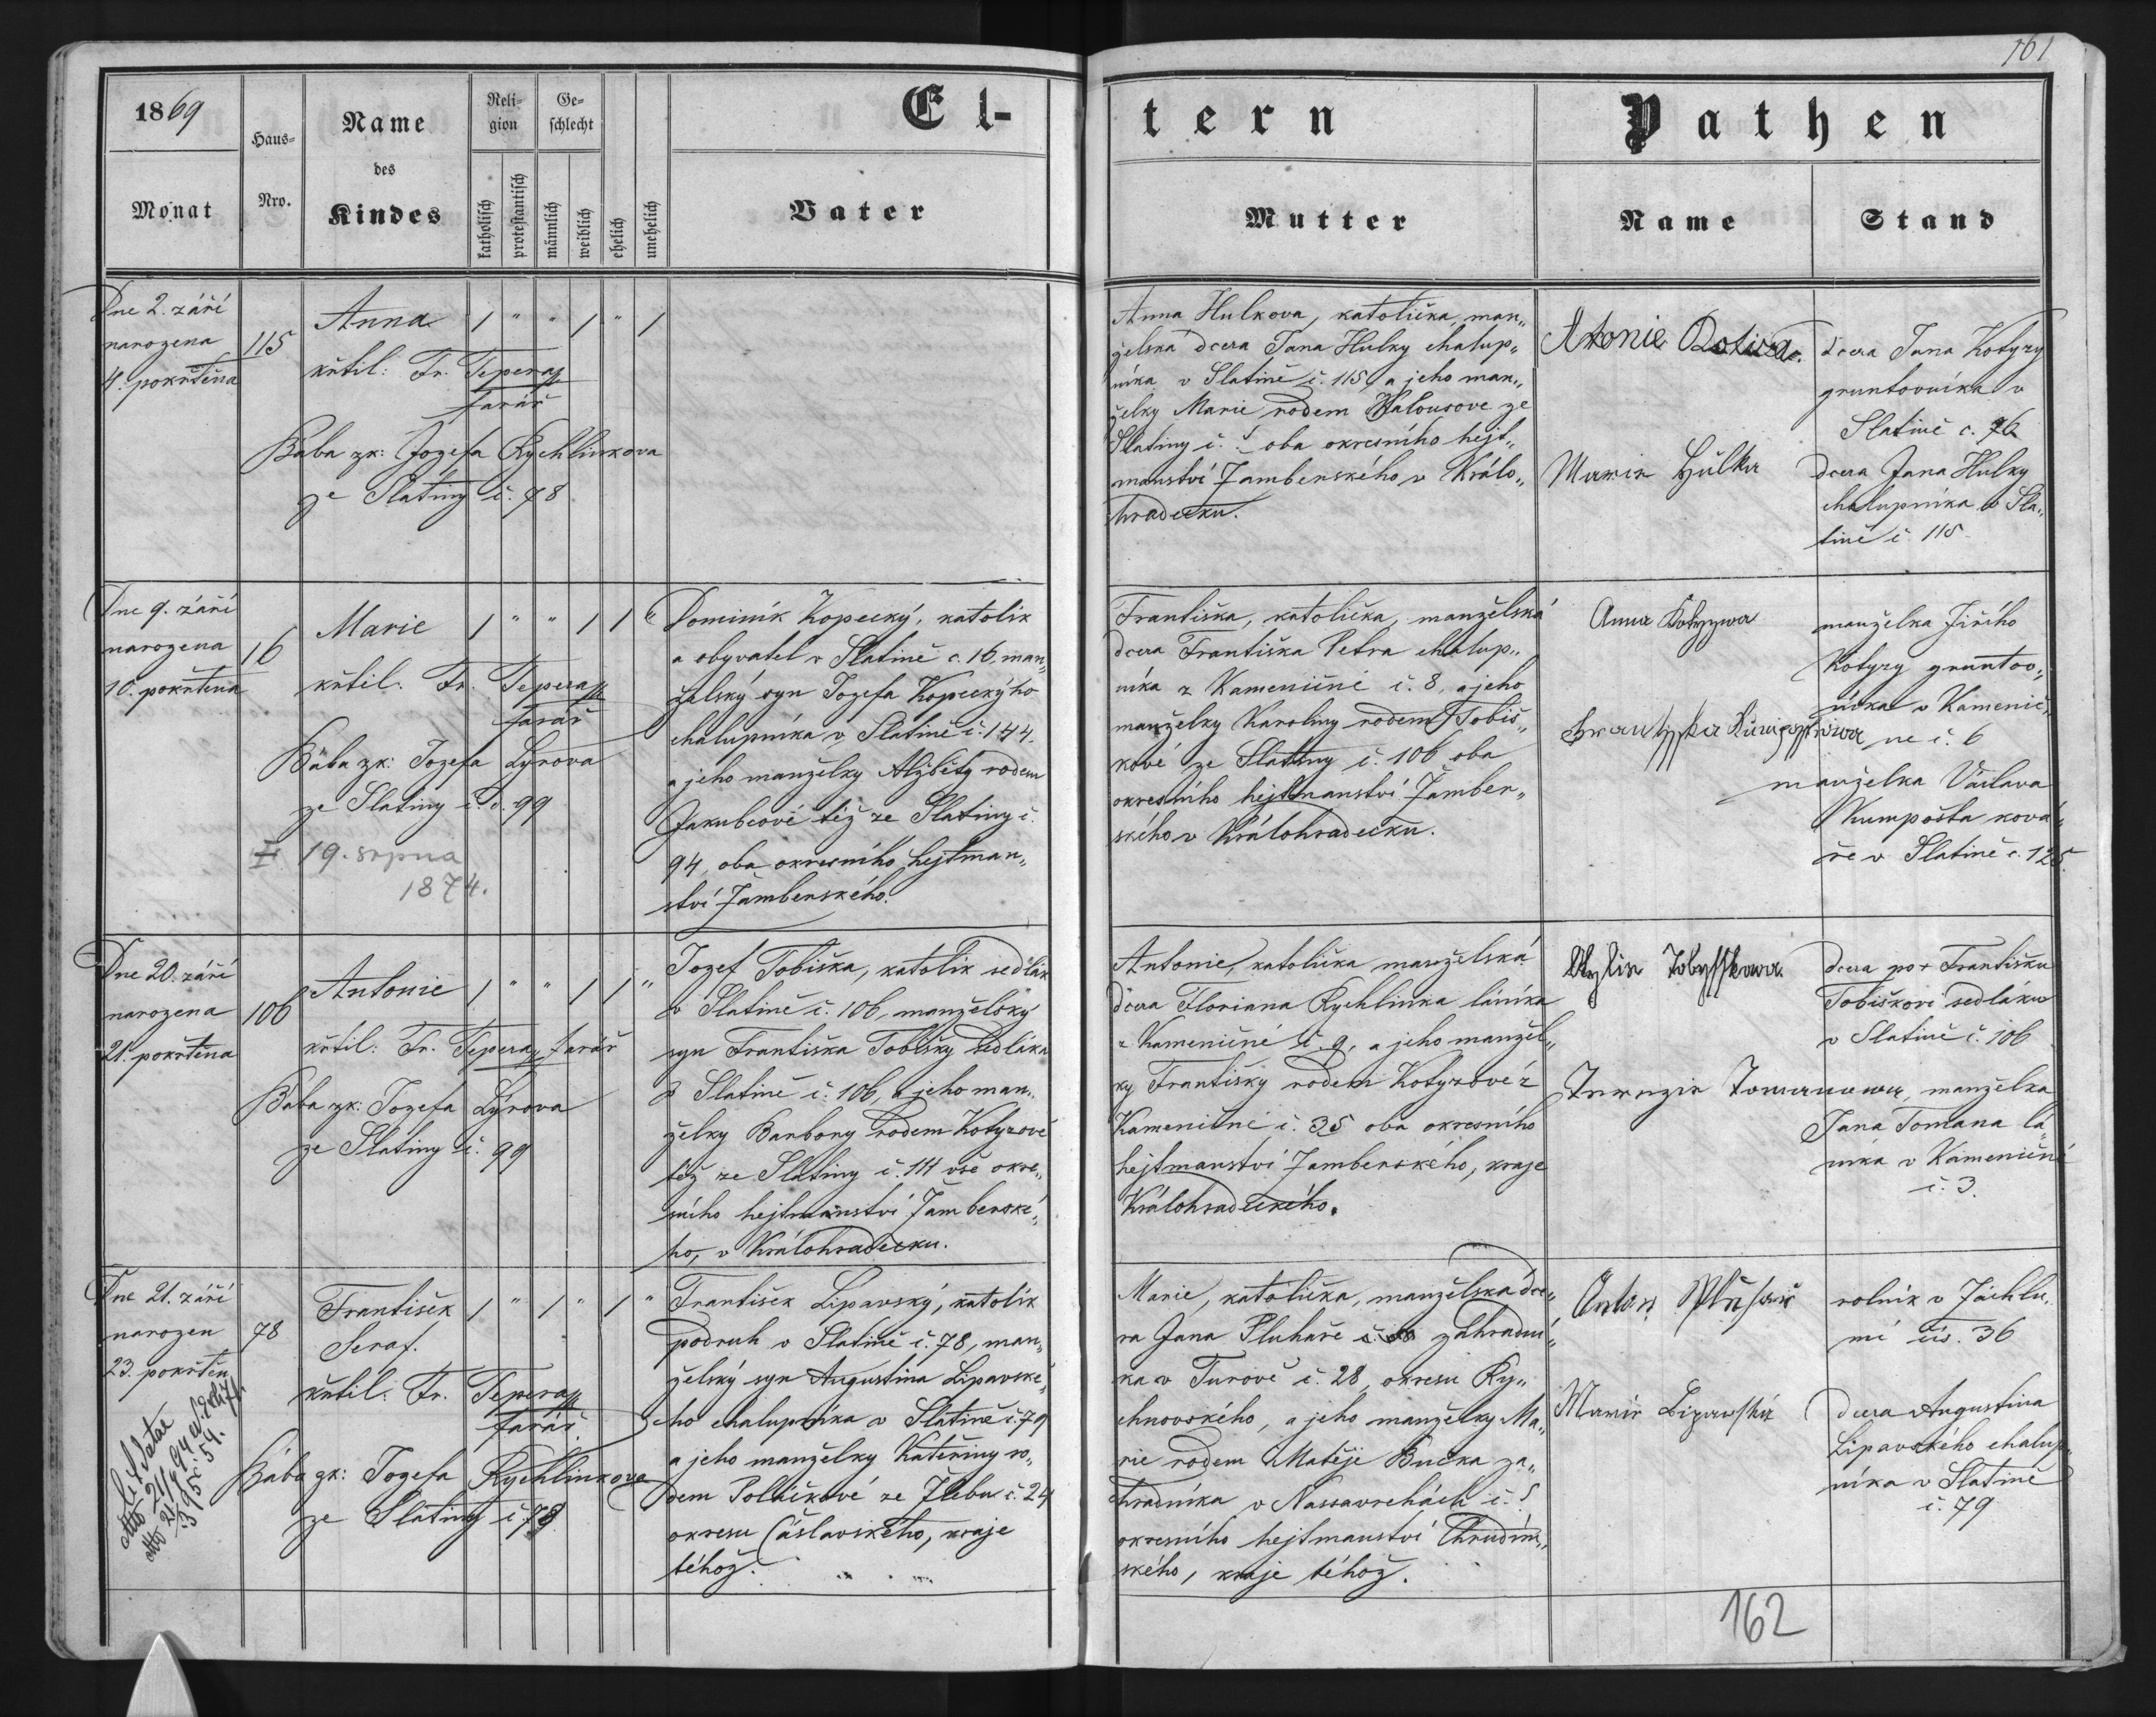 161
1869
Monat
Haus-
Nro.
Name
des
Kindes
Reli-
gion
katholisch
protestantisch
Ge-
schlecht
männlich
weiblich
ehelich
unehelich
El-
tern
Vater
Mutter
Pathen
Name
Stand
Dne 2. září
narozena
4. pokřtěna
115
Anna / " " / " /
křtil: Fr. Tepera
farář
Bába zk: Jozefa Rychlinkova
ze Slatiny č. 78
Anna Hulkova, katolička, man„
želská dcera Jana Hulky chalup„
níka v Slatině č. 115, a jeho man„
želky Marie rodem Kalousove ze
Slatiny č. oba okresního hejt„
manství Žamberského v Králo„
hradecku.
Marie Hulka
dcera Jana Kotyzy
gruntovníka v
Slatině č. 76
dcera Jana Hulky
chalupníka v Sla„
tině č 115
Dne 9. září
narozena
10. pokřtena
16
Marie / " " / / "
křtil: Fr. Tepera
farář
Bába zk: Jozefa Lyrova
ze Slatiny č. 99
19. srpna
1874.
Dominik Kopecký, katolík
a obyvatel v Slatině č. 16. man„
želský syn Jozefa Kopeckýho
chalupníka v Slatině č. 144.
a jeho manželky Alžběty rodem
Jakubcové též ze Slatiny č.
94, oba okresního hejtman„
ství Žamberského.
Františka, katolička, manželská
dcera Františka Petra chalup„
níka z Kameničné č. 8, a jeho
manželky Karoliny rodem Tobiš„
kové ze Slatiny č. 106 oba
okresního hejtmanství Žamber„
ského v Králohradecku.
Anna Kotyzowa
manželka Jiřího
Kotyzy gruntov„
níka v Kamenič„
né č. 6
manželka Václava
Kumpošta ková„
ře v Slatině č. 125.
Dne 20. září
narozena
21. pokřtěna
106
Antonie / " " / / "
křtil: Fr. Tepera farář
Bába zk: Jozefa Lýrova
ze Slatiny č. 99
Jozef Tobiška, katolík sedlák
v Slatině č. 106, manželský
syn Františka Tobišky sedláka
v Slatině č. 106, a jeho man„
želky Barbory rodem Kotyzové
též ze Slatiny č. 111 vše okre„
sního hejtmanství Žamberské„
ho, v Králohradecku.
Antonie, katolička manželská
dcera Floriana Rychlinka láníka
z Kameničné č. 9, a jeho manžel„
ky Františky rodem Kotyzové z
Kameničné č. 35 oba okresního
hejtmanství Žamberského, kraje
Králohradeckého.
Tobysskowa
dcera po + Františku
Tobiškovi sedláku
v Slatině č. 106
Terezie Tomanowa, manželka
Jana Tomana lá„
níka v Kameničné
č. 3.
Dne 21. září
narozen
23. pokřtěn
78
František / " / " / "
Seraf.
křtil: Fr. Tepera
farář.
Bába zk: Jozefa Rychlinkova
ze Slatiny č. 78
František Lipavský, katolík
podruh v Slatině č. 78, man„
želský syn Augustina Lipavské„
ho chalupníka v Slatině č. 79
a jeho manželky Kateřiny ro„
dem Poláčkové ze Žlebu č. 24
okresu Čáslavského, kraje
téhož.
Marie, katolička, manželská dce„
ra Jana Pluhaře zahradní„
ka v Turově č. 28, okresu Ry„
chnovského, a jeho manželky Ma„
rie rodem Matěje Bučka za„
hradníka v Nassavrchách č.
okresního hejtmanství Chrudim„
ského, kraje téhož.
Anton Pluhař
rolník v Jáchlu„
mí čís. 36
Marie Lipawská
dcera Augustina
Lipavského chalup„
níka v Slatině
č. 79
162